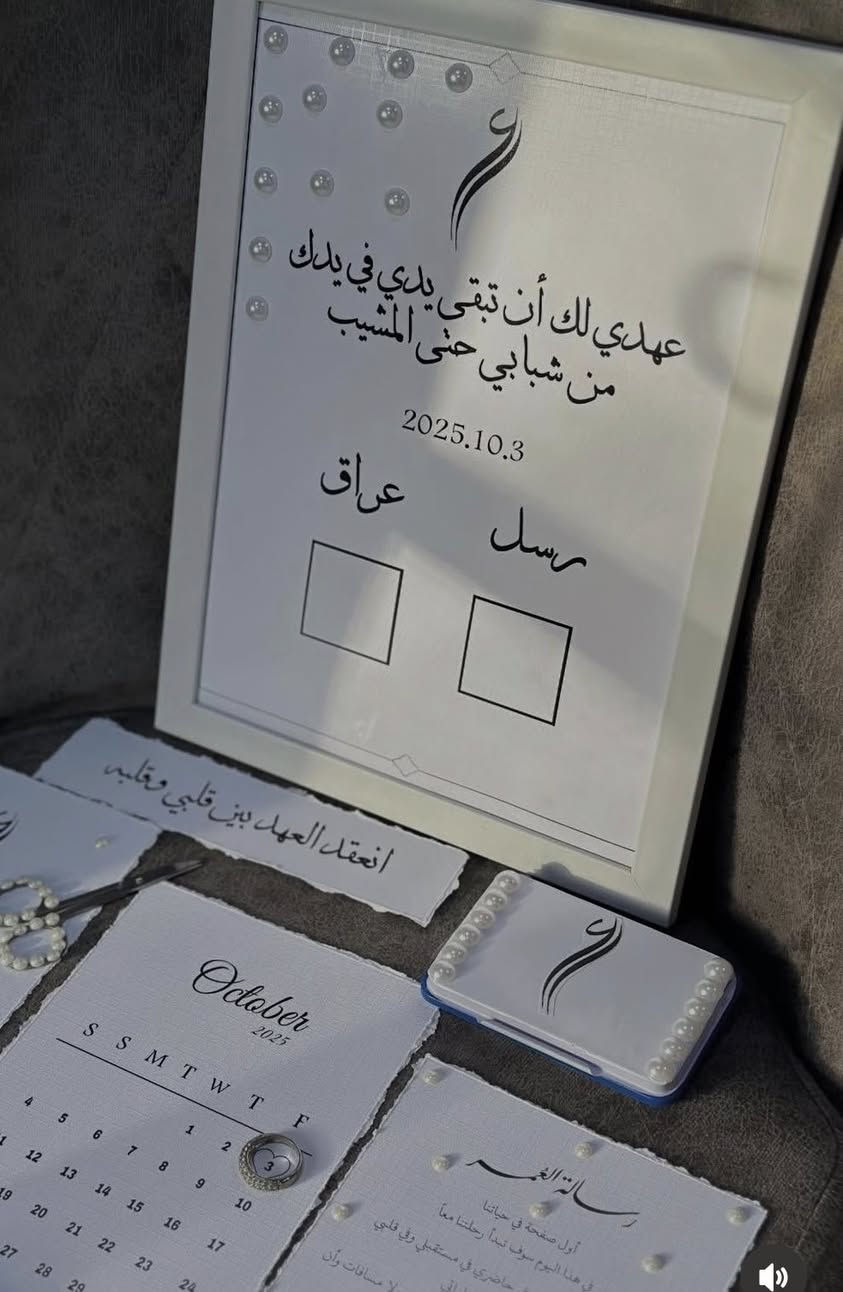 عهدي لك أن تبقى يدي في يدك
من شبابي حتى المشيب
2025.10.3
رسل
عراق
انعقد العهد بين قلبي وقلبه
October
2025
S S M T W T F
1 2 3
4 5 6 7 8 9 10
12 13 14 15 16 17
19 20 21 22 23 24
27 28 29
رسالة العمر
أول صفحة في حياتنا
في هذا اليوم سوف تبدأ رحلتنا معاً
حاضري في مستقبلي وفي قلبي
مسافات وأن